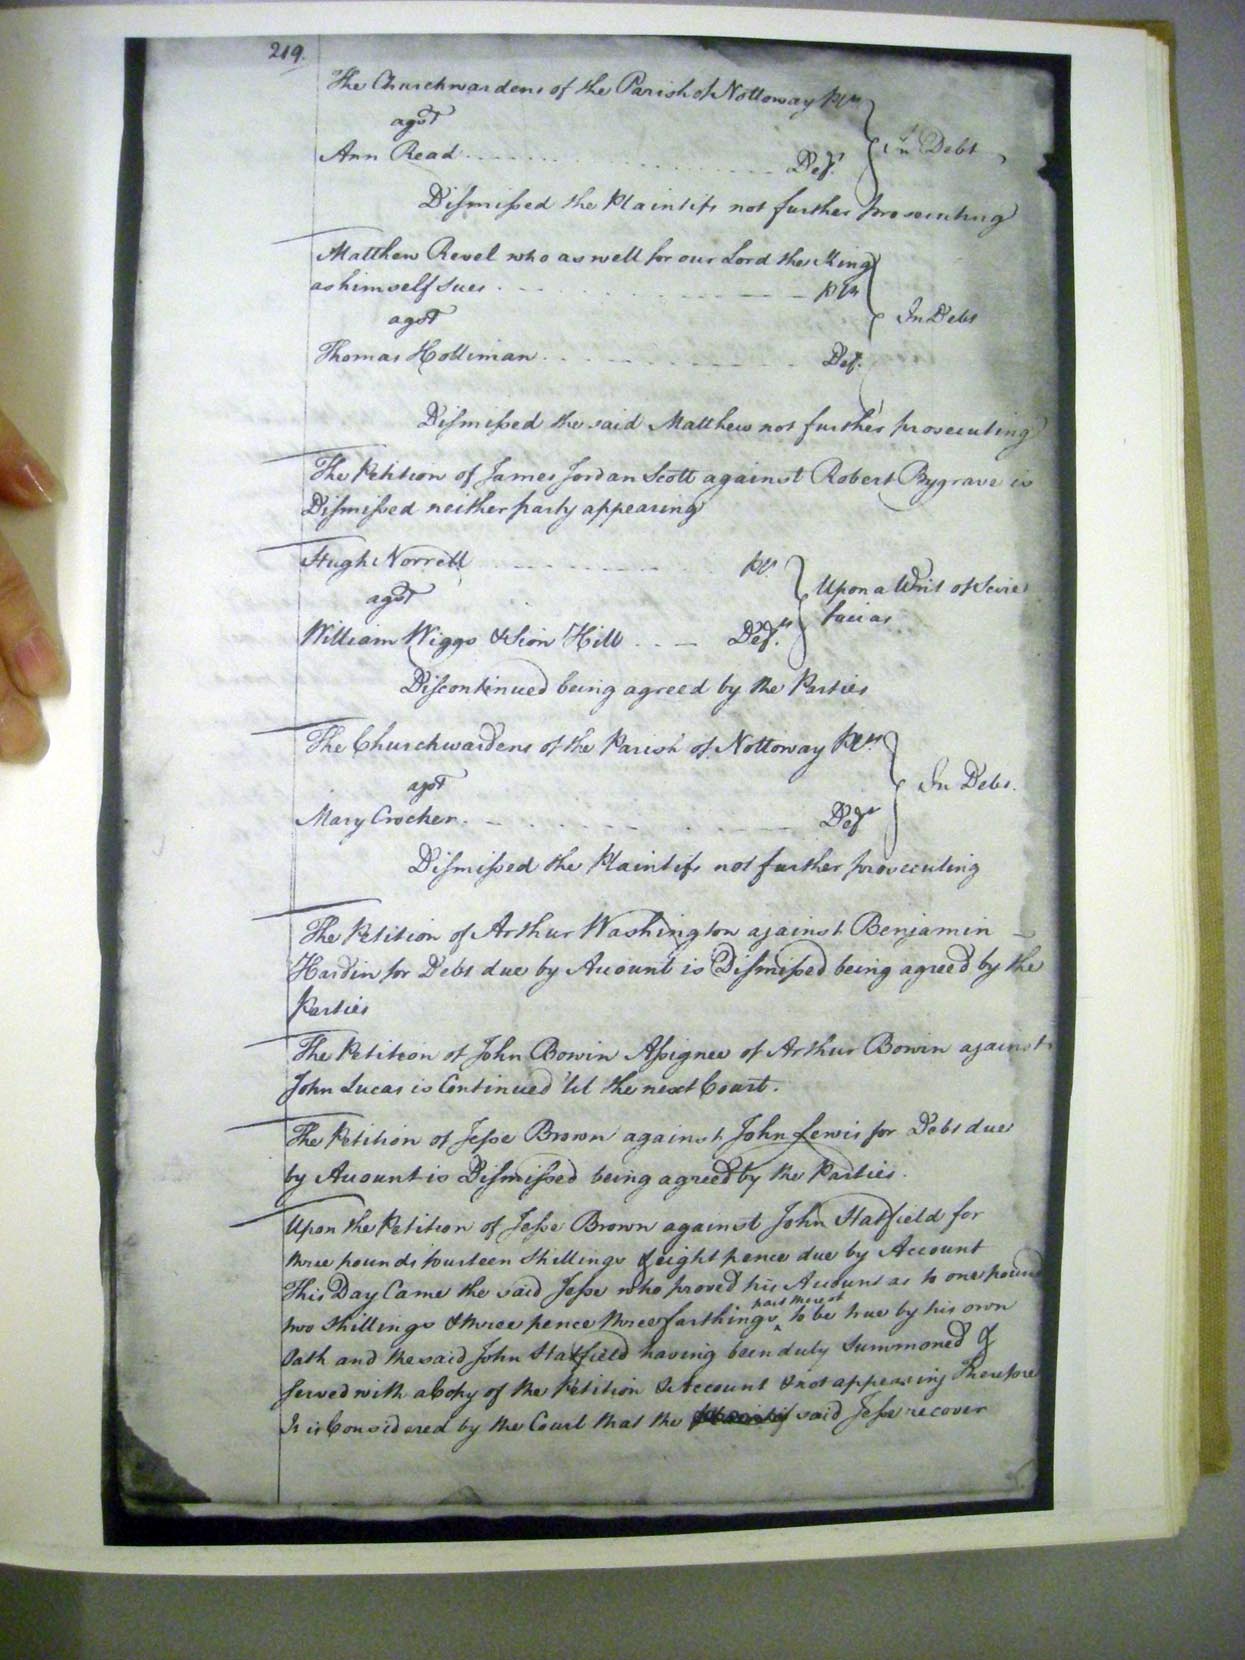 219.
The Churchwardens of the Parish of Nottoway Pl.ts
agst
Ann Read Def.t
In Debt
Dismissed the Plaintifs not further prosecuting
Matthew Revel who as well for our Lord the King
as himself sues Plt
agst
In Debt
Thomas Holliman Def.
Dismissed the said Matthew not further prosecuting
The Petition of James Jordan Scott against Robert Bygrave is
Dismissed neither party appearing
Hugh Norrell Pl.
agst
Upon a Writ of Scire
facias
William Wiggs & Sion Hill Def.ts
Discontinued being agreed by the Parties
The Churchwardens of the Parish of Nottoway Pl.ts
agst
In Debt.
Mary Crocker Deft
Dismissed the Plaintifs not further prosecuting
The Petition of Arthur Washington against Benjamin
Hardin for Debt due by Account is Dismissed being agreed by the
Parties
The Petition of John Bowin Assignee of Arthur Bowin against
John Lucas is Continued 'til the next Court.
The Petition of Jesse Brown against John Lewis for Debt due
by Account is Dismissed being agreed by the Parties.
Upon the Petition of Jesse Brown against John Hatfield for
three pounds fourteen shillings & eight pence due by Account
This Day Came the said Jesse who proved his Account as to one pound
two shillings & three pence three farthings part thereof to be true by his own
Oath and the said John Hatfield having been duly Summoned &
served with a Copy of the Petition & Account & not appearing Therefore
It is Considered by the Court that the said Jesse recover